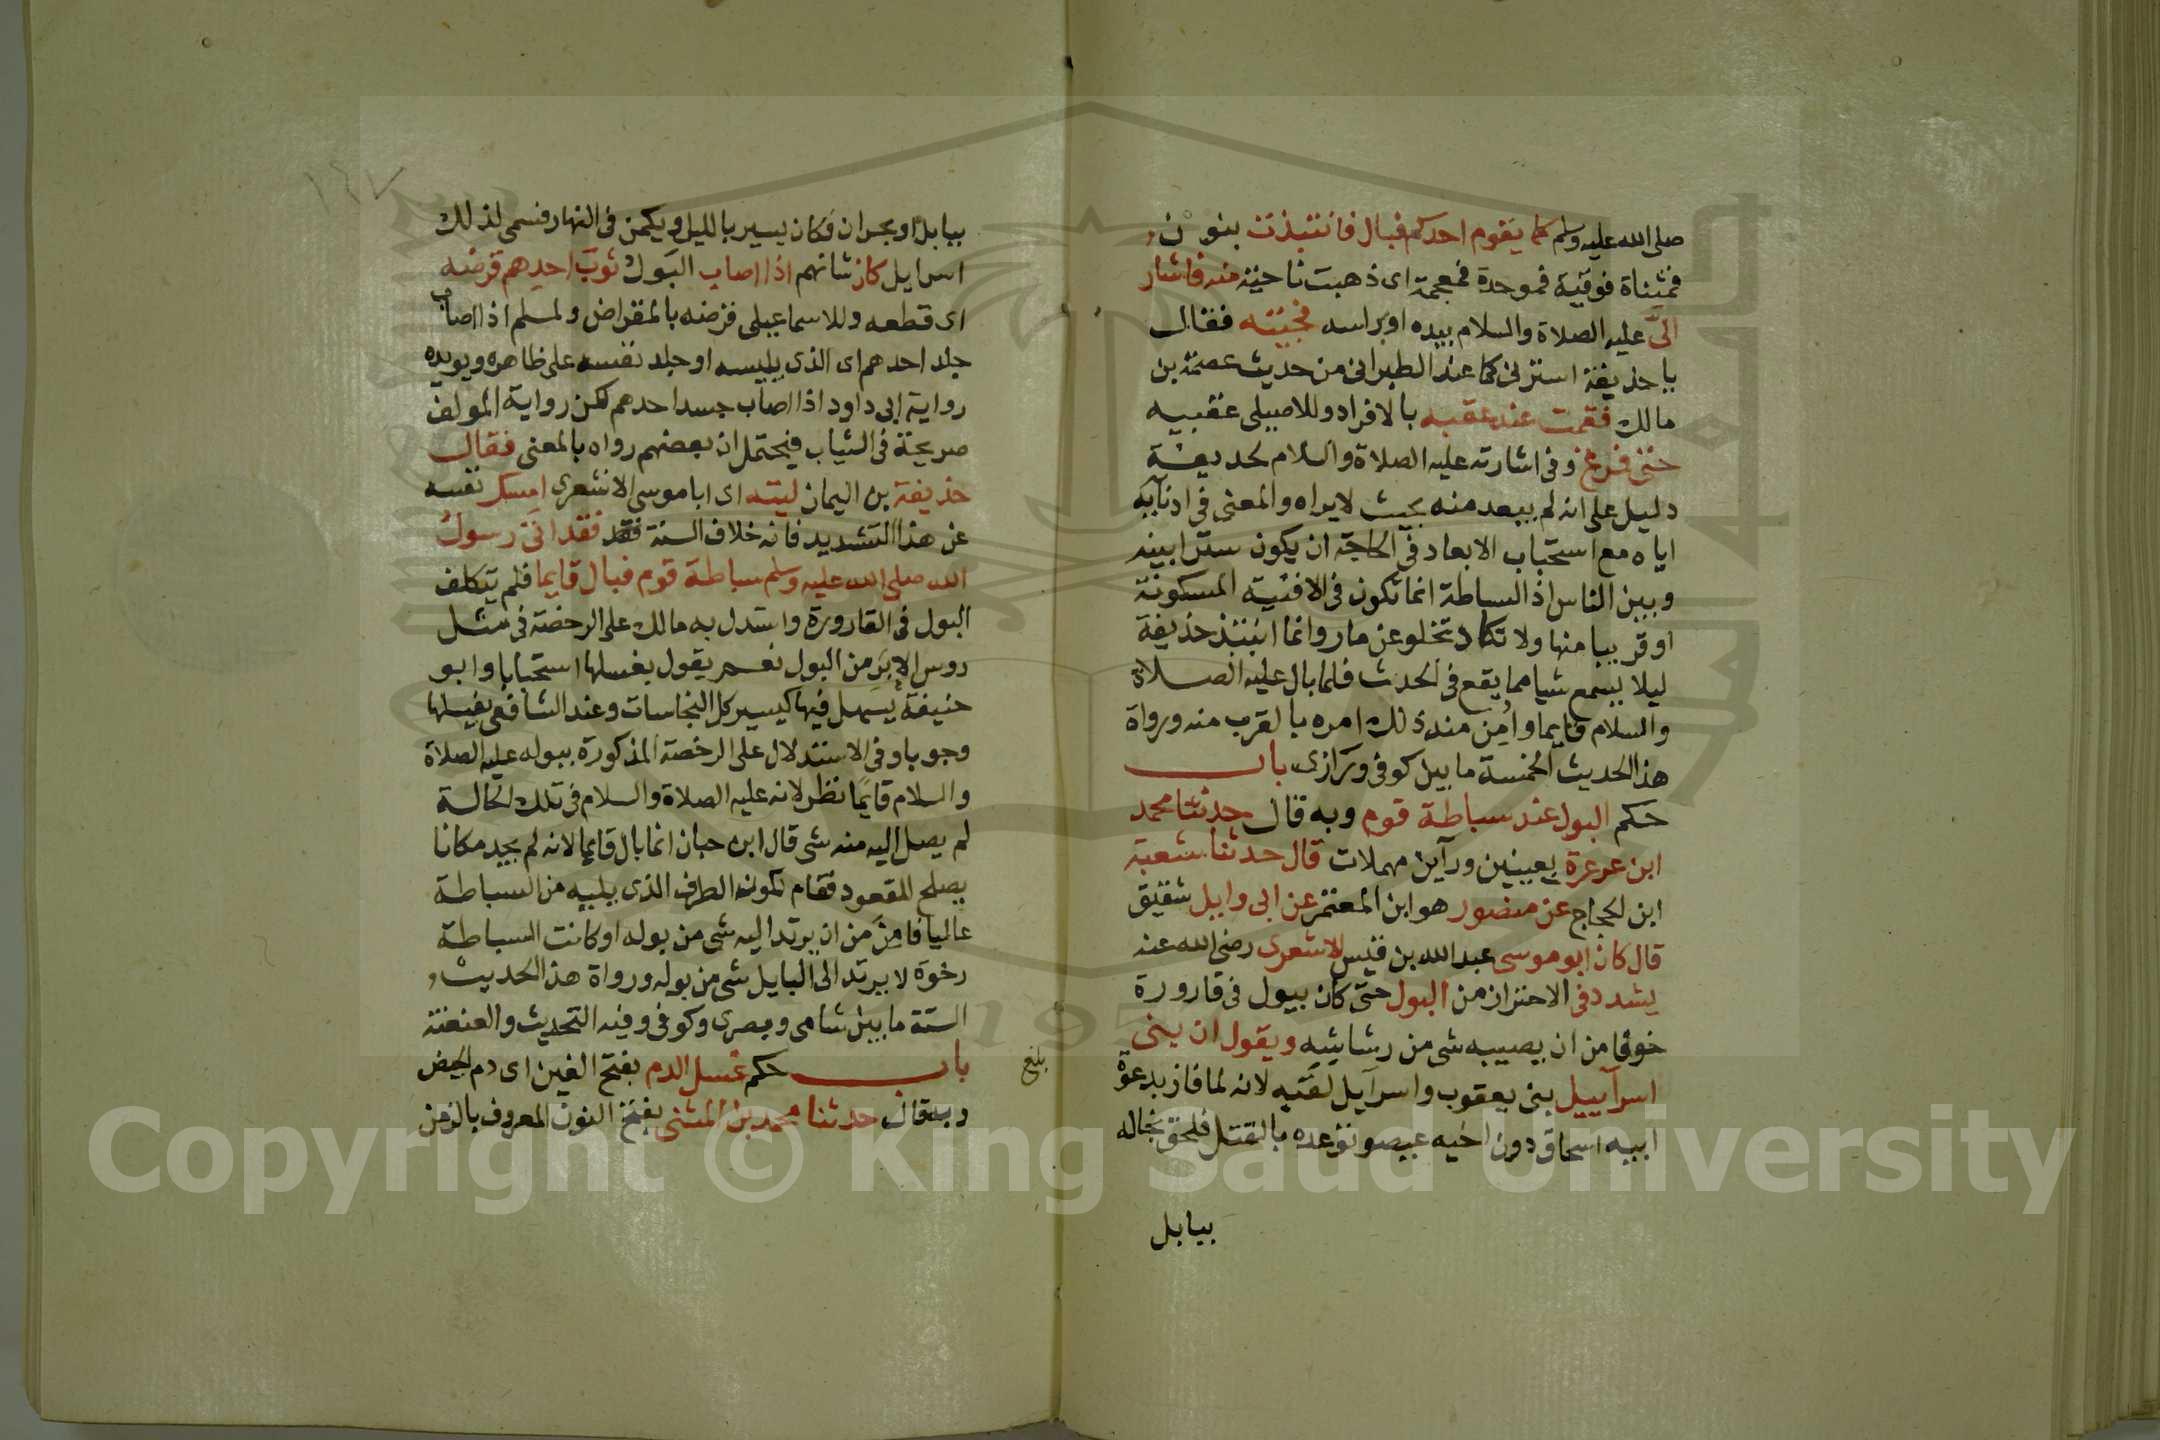 صلى الله عليه وسلم كما يقوم احدكم فبال فانتبذت بنون
فمثناة فوقية فموحدة فمعجمة اى ذهبت ناحية منه فاشار
الىّ عليه الصلاة والسلام بيده او براسه فجيته فقال
يا حذيفة استرنى كما عند الطبرانى من حديث عصمة بن
مالك فقمت عند عقبه بالافراد وللاصيلى عقبيه
حتى فرغ وفى اشارته عليه الصلاة والسلام لحديفة
دليل على انه لم يبعد منه بحيث لا يراه والمعنى فى ادنآيه
اياه مع استحباب الابعاد فى الحاجة ان يكون سترا بينه
وبين الناس اذ السباطة انما تكون فى الافنية المسكونة
او قريبا منها ولا تكاد تخلو عن مار وانما انتبذ حذيفة
ليلا يسمع شيا مما يقع فى الحدث فلما بال عليه الصلاة
والسلام قايما وامن منه ذلك امره بالقرب منه ورواة
هذا الحديث الخمسة ما بين كوفى ورازى باب
حكم البول عند سباطة قوم وبه قال حدثنا محمد
ابن عرعرة بعينين ورآين مهملات قال حدثنا شعبة
ابن الحجاج عن منصور هو ابن المعتمر عن ابى وايل شقيق
قال كان ابو موسى عبد الله بن قيس الاشعرى رضى الله عنه
يشدد فى الاحتراز من البول حتى كان يبول فى قارورة
خوفا من ان يصيبه شى من رشاشه ويقول ان بنى
اسرآييل بنى يعقوب واسرآيل لقبه لانه لما فاز بدعوة
ابيه اسحاق دون اخيه عيصو توعده بالقتل فلحق بخاله
بيابل
١٤٧
بيابل او بحران فكان يسير بالليل ويكمن فى النهار فسمى لذلك
اسرايل كان شانهم اذا اصاب البول ثوب احدهم قرضه
اى قطعه وللاسماعيلى قرضه بالمقراض ولمسلم اذا اصاب
جلد احدهم اى الذى يلبسه او جلد نفسه على ظاهره ويويده
رواية ابى داود اذا اصاب جسد احدهم لكن رواية المولف
صريحة فى الثياب فيحتمل ان بعضهم رواه بالمعنى فقال
حذيفة بن اليمان ليته اى ابا موسى الاشعرى امسك نفسه
عن هذا التشديد فانه خلاف السنة فقد فقد اتى رسول
الله صلى الله عليه وسلم سباطة قوم فبال قايما فلم يتكلف
البول فى القارورة واستدل به مالك على الرخصة فى مثل
روس الابر من البول نعم يقول بغسلها استحبابا وابو
حنيفة يسهل فيها كيسير كل النجاسات وعند الشافعى يغسلها
وجوبا وفى الاستدلال على الرخصة المذكورة ببوله عليه الصلاة
والسلام قايما نظر لانه عليه الصلاة والسلام فى تلك الحالة
لم يصل اليه منه شى قال ابن حبان انما بال قايما لانه لم يجد مكانا
يصلح للقعود فقام لكون الطرف الذى يليه من السباطة
عاليا فامن من ان يرتد اليه شى من بوله او كانت السباطة
رخوة لا يرتد الى البايل شى من بوله ورواة هذا الحديث
الستة ما بين شامى وبصرى وكوفى وفيه التحديث والعنعنة
باب حكم غسل الدم بفتح الغين اى دم الحيض
وبه قال حدثنا محمد بن المثنى بفتح النون المعروف بالزمن
بلغ
Copyright © King Saud University